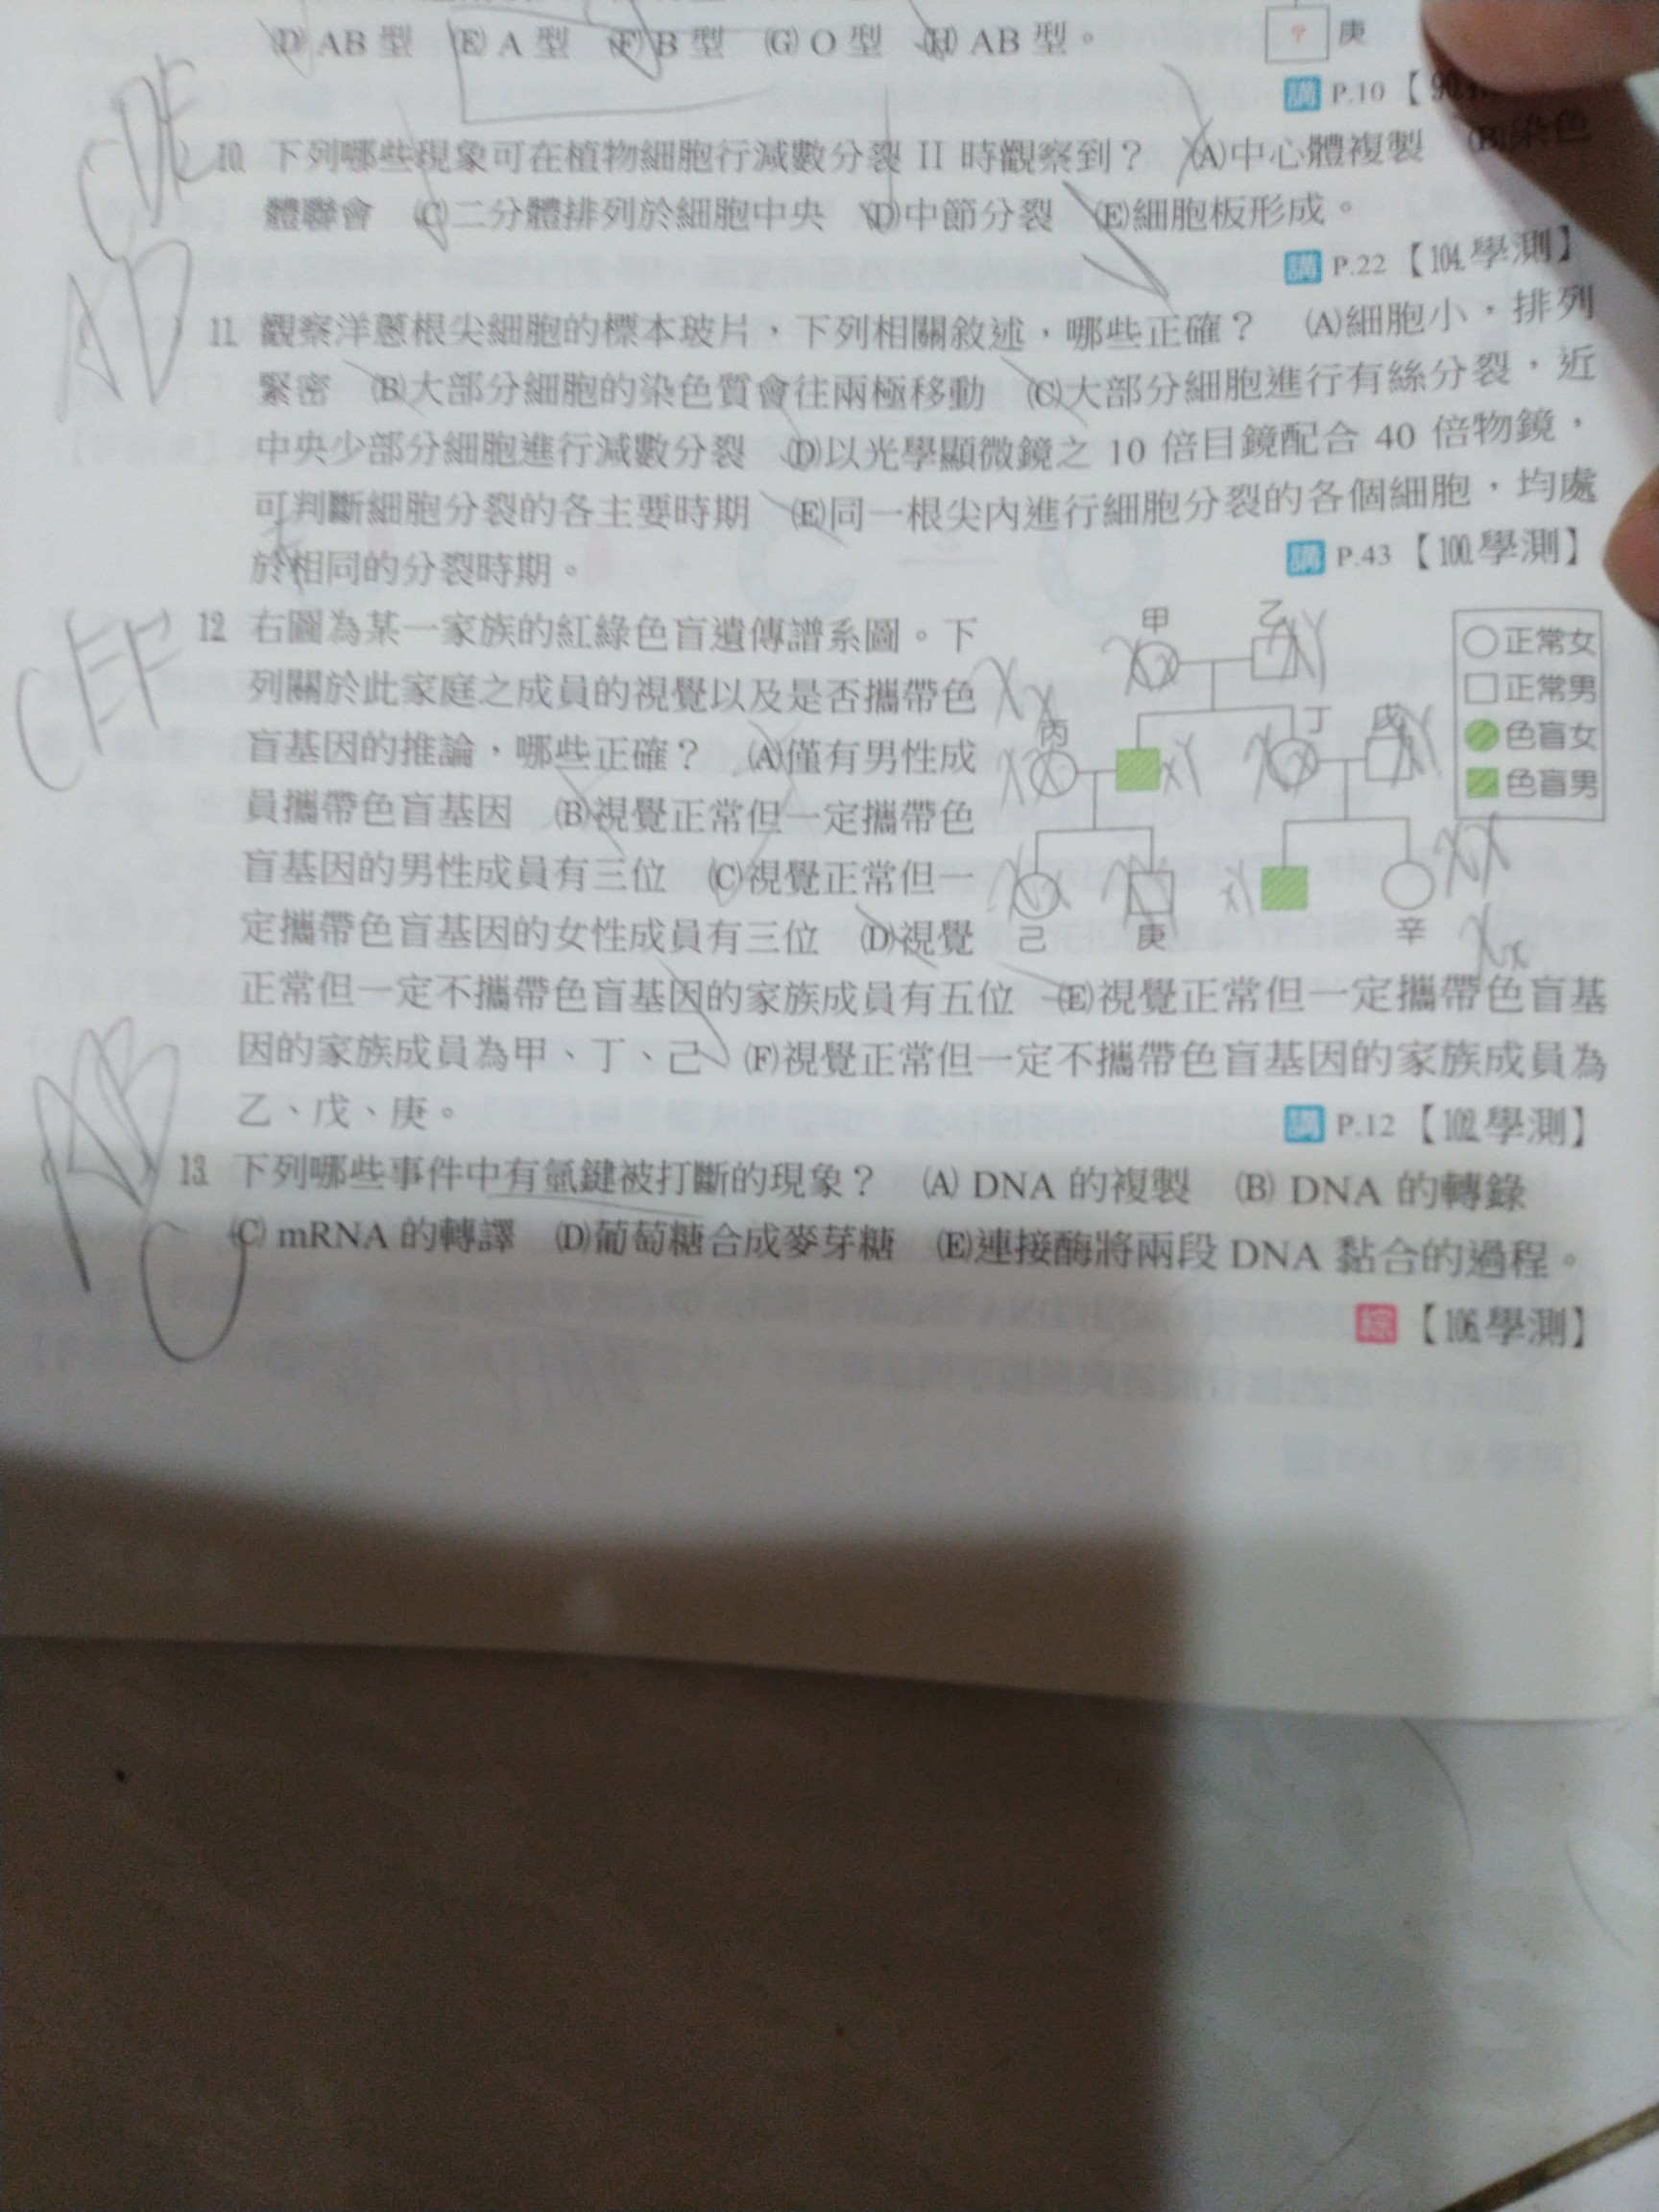 (D) AB 型 (E) A 型 (F) B 型 (G) O 型 (H) AB 型。
? 庚
講 P.10 【90.
CDE
10. 下列哪些現象可在植物細胞行減數分裂 II 時觀察到? (A)中心體複製 (B)染色
體聯會 (C)二分體排列於細胞中央 (D)中節分裂 (E)細胞板形成。
講 P.22 【104.學測】
AD
11. 觀察洋蔥根尖細胞的標本玻片,下列相關敘述,哪些正確? (A)細胞小,排列
緊密 (B)大部分細胞的染色質會往兩極移動 (C)大部分細胞進行有絲分裂,近
中央少部分細胞進行減數分裂 (D)以光學顯微鏡之 10 倍目鏡配合 40 倍物鏡,
可判斷細胞分裂的各主要時期 (E)同一根尖內進行細胞分裂的各個細胞,均處
於相同的分裂時期。
講 P.43 【100.學測】
CEF
12. 右圖為某一家族的紅綠色盲遺傳譜系圖。下
列關於此家庭之成員的視覺以及是否攜帶色
盲基因的推論,哪些正確? (A)僅有男性成
員攜帶色盲基因 (B)視覺正常但一定攜帶色
盲基因的男性成員有三位 (C)視覺正常但一
定攜帶色盲基因的女性成員有三位 (D)視覺
正常但一定不攜帶色盲基因的家族成員有五位 (E)視覺正常但一定攜帶色盲基
因的家族成員為甲、丁、己 (F)視覺正常但一定不攜帶色盲基因的家族成員為
乙、戊、庚。
甲 乙
丙 丁 戊
己 庚 辛
正常女
正常男
色盲女
色盲男
講 P.12 【102.學測】
ABC
13. 下列哪些事件中有氫鍵被打斷的現象? (A) DNA 的複製 (B) DNA 的轉錄
(C) mRNA 的轉譯 (D)葡萄糖合成麥芽糖 (E)連接酶將兩段 DNA 黏合的過程。
綜 【106.學測】